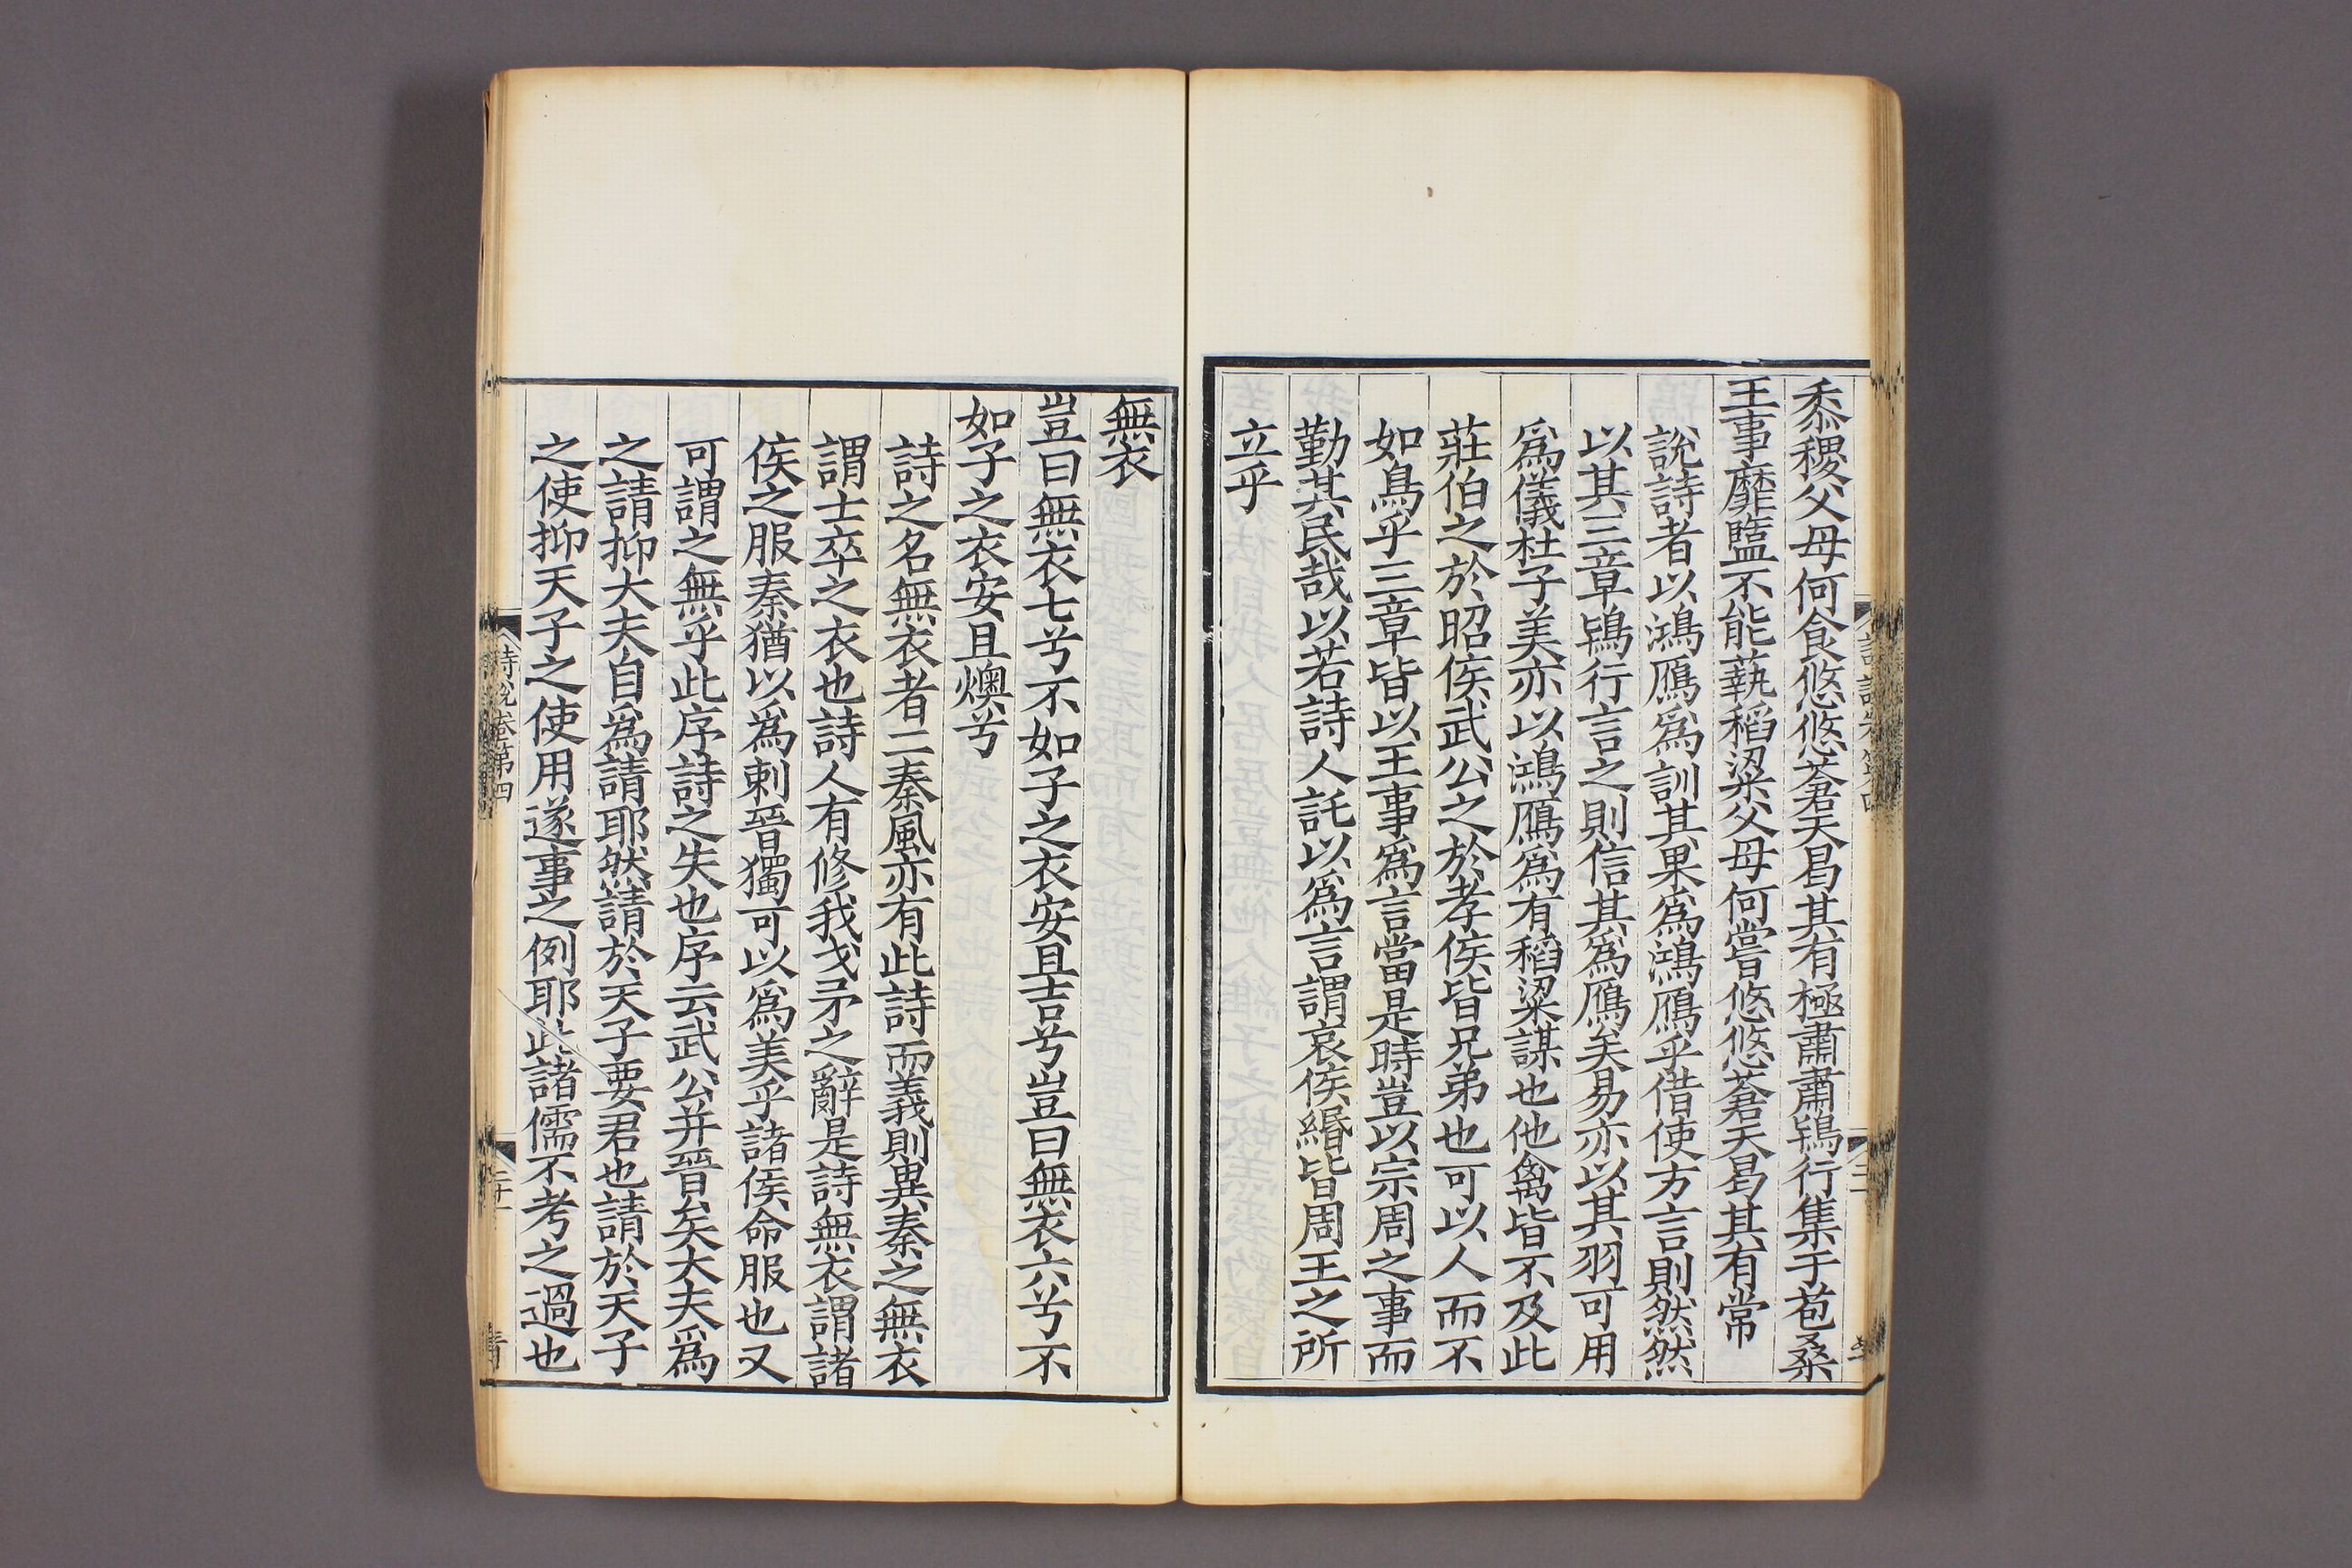 黍稷父母何食悠悠蒼天曷其有極肅肅鴇行集于苞桑
王事靡盬不能蓺稻粱父母何嘗悠悠蒼天曷其有常
說詩者以鴻鴈爲訓其果爲鴻鴈乎借使方言則然然
以其三章鴇行言之則信其爲鴈矣易亦以其羽可用
爲儀杜子美亦以鴻鴈爲有稻粱謀也他禽皆不及此
莊伯之於昭侯武公之於孝侯皆兄弟也可以人而不
如鳥乎三章皆以王事爲言當是時豈以宗周之事而
勤其民哉以若詩人託以爲言謂哀侯緡皆周王之所
立乎
無衣
豈曰無衣七兮不如子之衣安且吉兮豈曰無衣六兮不
如子之衣安且燠兮
詩之名無衣者二秦風亦有此詩而義則異秦之無衣
謂士卒之衣也詩人有修我戈矛之辭是詩無衣謂諸
侯之服秦猶以爲刺晉獨可以爲美乎諸侯命服也又
可謂之無乎此序詩之失也序云武公并晉矣大夫爲
之請抑大夫自爲請耶然請於天子要君也請於天子
之使抑天子之使用遂事之例耶此諸儒不考之過也
詩說卷第四
二十一